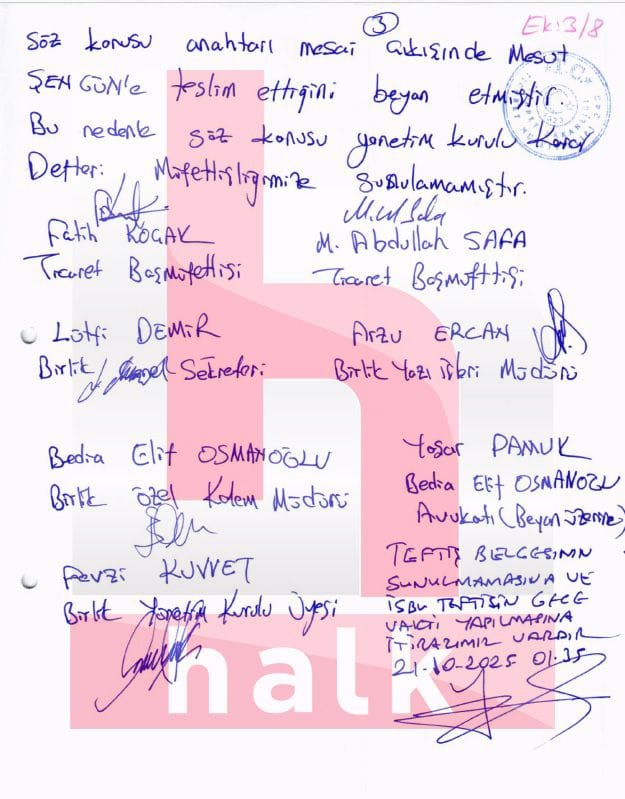 3
Ek:3/8
Söz konusu anahtarı mesai çıkışında Mesut
ŞENGÜN'e teslim ettiğini beyan etmiştir.
Bu nedenle söz konusu yönetim kurulu Karar
Defteri Müfettişliğimize sunulamamıştır.
Fatih KOÇAK
M. Abdullah SAFA
Ticaret Başmüfettişi
Ticaret Başmüfttişi
Lütfi DEMİR
Arzu ERCAN
Birlik Genel Sekreteri
Birlik Yazı İşleri Müdürü
Bedia Elif OSMANOĞLU
Birlik Özel Kalem Müdürü
Yaşar PAMUK
Bedia Elif OSMANOĞLU
Avukatı (Beyan üzerine)
Fevzi KUVVET
Birlik Yönetim Kurulu Üyesi
TEFTİŞ BELGESİNİN
SUNULMAMASINA VE
İŞBU TEFTİŞİN GECE
VAKTİ YAPILMASINA
İTİRAZIMIZ VARDIR
21-10-2025 01.35
halk